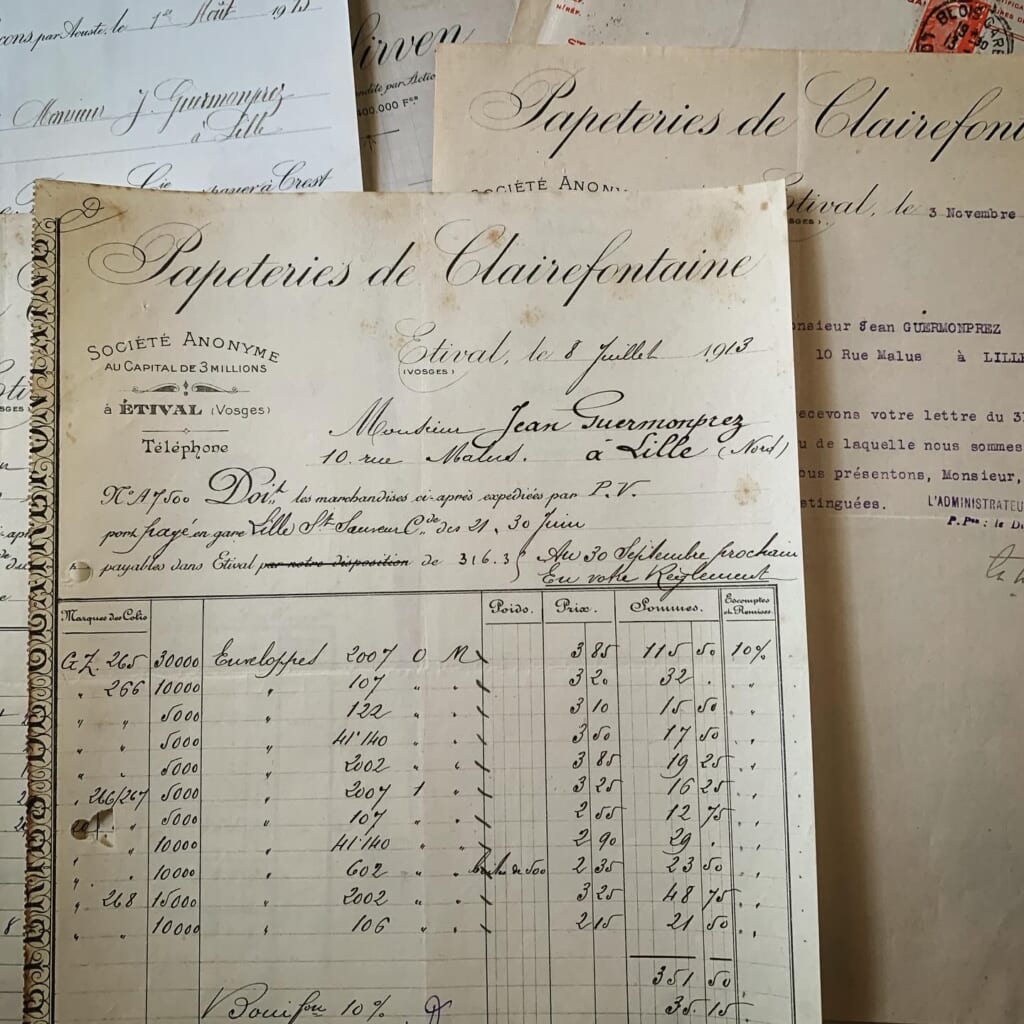 par Aouste, le 1er Août 1913
Monsieur J. Guermonprez
à Lille
payer à Crest
irven
400.000 Frs
BLOIS GARE
Papeteries de Clairefont
SOCIÉTÉ ANONY
Etival, le 3 Novembre
onsieur Jean GUERMONPREZ
10 Rue Malus à LILLE
ecevons votre lettre du 3
de laquelle nous sommes
ous présentons, Monsieur,
stinguées. L'ADMINISTRATEU
P. Pon : le D
Papeteries de Clairefontaine
SOCIÉTÉ ANONYME
AU CAPITAL DE 3 MILLIONS
à ÉTIVAL (Vosges)
Téléphone
Etival, le 8 Juillet 1913
(VOSGES)
Monsieur Jean Guermonprez
10. rue Malus. à Lille (Nord)
No A 7500 Doit les marchandises ci-après expédiées par P.V.
port payé en gare Lille St Sauveur Cde des 21. 30 Juin
payables dans Etival par notre disposition de 316.3 Au 30 Septembre prochain
En votre Règlement
Marques des Colis Poids. Prix. Sommes. Escomptes et Remises
GZ. 265 30000 Enveloppes 2007 0 M 3 85 115 50 10%
" 266 10000 " 107 " " 3 20 32 . "
" " 5000 " 122 " " 3 10 15 50 "
" " 5000 " 41'140 " " 3 50 17 50 "
" " 5000 " 2002 " " 3 85 19 25 "
" 266/267 5000 " 2007 1 " 3 25 16 25 "
" " 5000 " 107 " " 2 55 12 75 "
" " 10000 " 41'140 " " 2 90 29 . "
" " 10000 " 602 " " de 500 2 35 23 50 "
" 268 15000 " 2002 " " 3 25 48 75 "
" " 10000 " 106 " " 2 15 21 50 "
351 50
10% 35.15